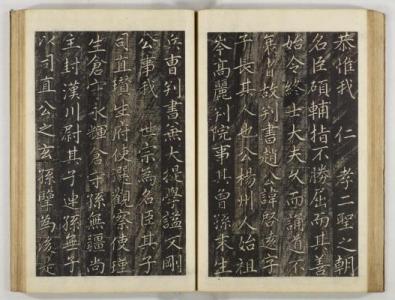 恭惟我 仁 孝二聖之朝
名臣碩輔指不勝屈而其善
始令終士大夫久而誦道不
衰者故判書趙公諱啓遠字
子長其人也公揚州人始祖
岑高麗判院事其曾孫末生
兵曹判書兼大提學謚文剛
公事我 世宗為名臣其子
司直瑾生府使選觀察使瑾
生倉守永輝倉守孫無疆尚
主封漢川尉其子連孫無子
以司直公之玄孫擥為後是